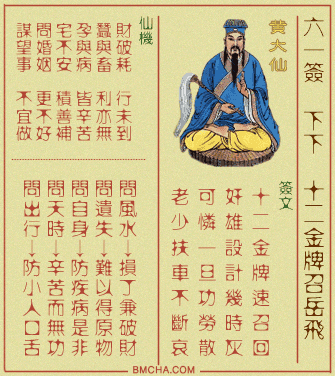 六一簽 下下 十二金牌召岳飛
黃大仙
簽文
十二金牌速召回
奸雄設計幾時灰
可憐一旦功勞散
老少扶車不斷哀
仙機
財破耗 行未到
蠶與畜 利亦無
孕與病 皆辛苦
宅不安 積善補
問婚姻 更不好
謀望事 不宜做
問風水→損丁兼破財
問遺失→難以得原物
問自身→防疾病是非
問天時→辛苦而無功
問出行→防小人口舌
BMCHA.COM